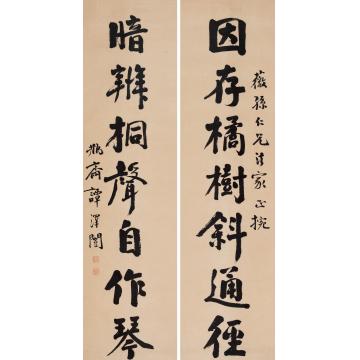 因存橘樹斜通徑
薇孫仁兄法家正捥
暗辨桐聲自作琴
瓶齋譚澤闓